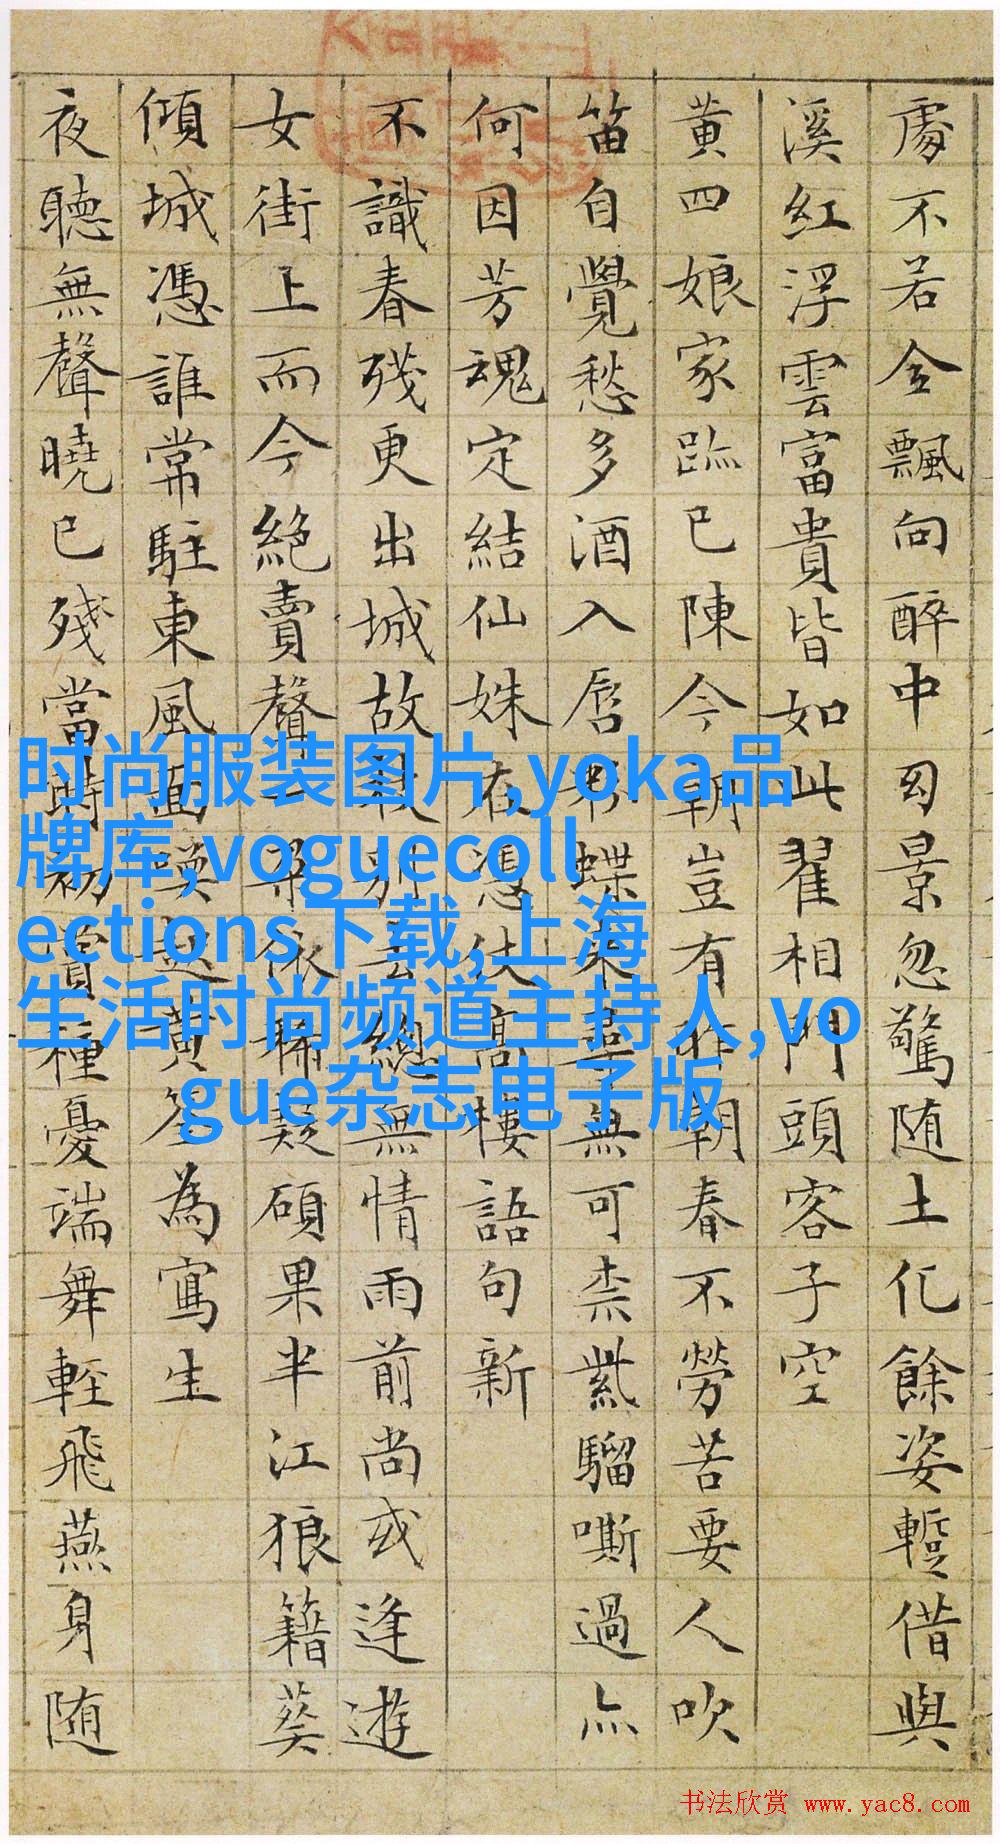 處不若全飄向醉中幻景忽驚随土化餘姿蹔借與
溪紅浮雲富貴皆如此翟相門頭客子空
黃四娘家跡已陳今朝豈有昨朝春不勞苦要人吹
笛自覺愁多酒入唇粉蝶來尋無可柰紫騮嘶過亦
何因芳魂定結仙姝在憑仗高樓語句新
不識春殘更出城故教別去總無情雨前尚或逢遊
女街上而今絕賣聲一朵依稀疑碩果半江狼籍葵
傾城憑誰常駐東風面喚起黃筌為寫生
夜聽無聲曉已殘當時初賞種憂端舞輕飛燕身随
时尚服装图片,yoka品
牌库,voguecoll
ections下载,上海
生活时尚频道主持人,vo
gue杂志电子版
书法欣赏 www.yac8.com